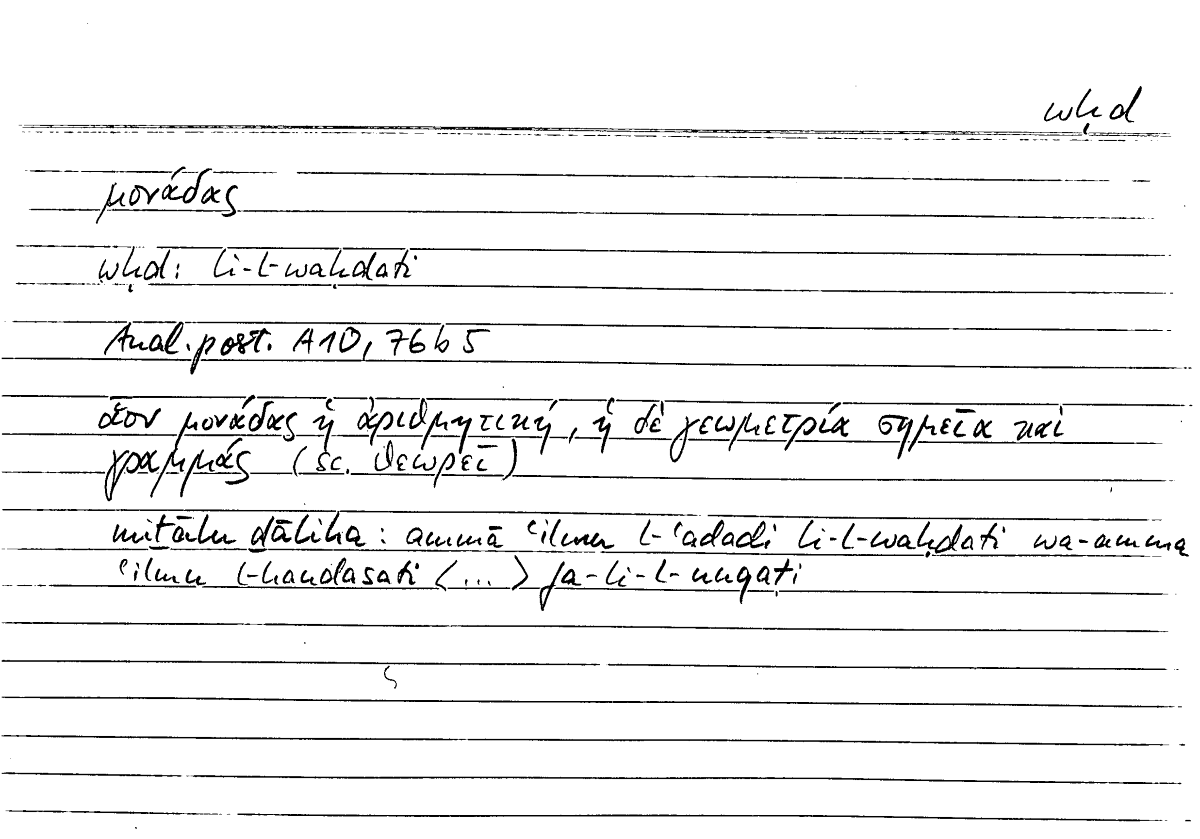 wḥd
μονάδας
wḥd: li-l-waḥdati
Anal. post. A10, 76 b 5
οἷον μονάδας ἡ ἀριθμητική, ἡ δὲ γεωμετρία σημεῖα καὶ
γραμμάς (sc. θεωρεῖ)
miṯālu ḏālika: ammā ʿilmu l-ʿadadi li-l-waḥdati wa-ammā
ʿilmu l-handasati <...> fa-li-l-nuqaṭi